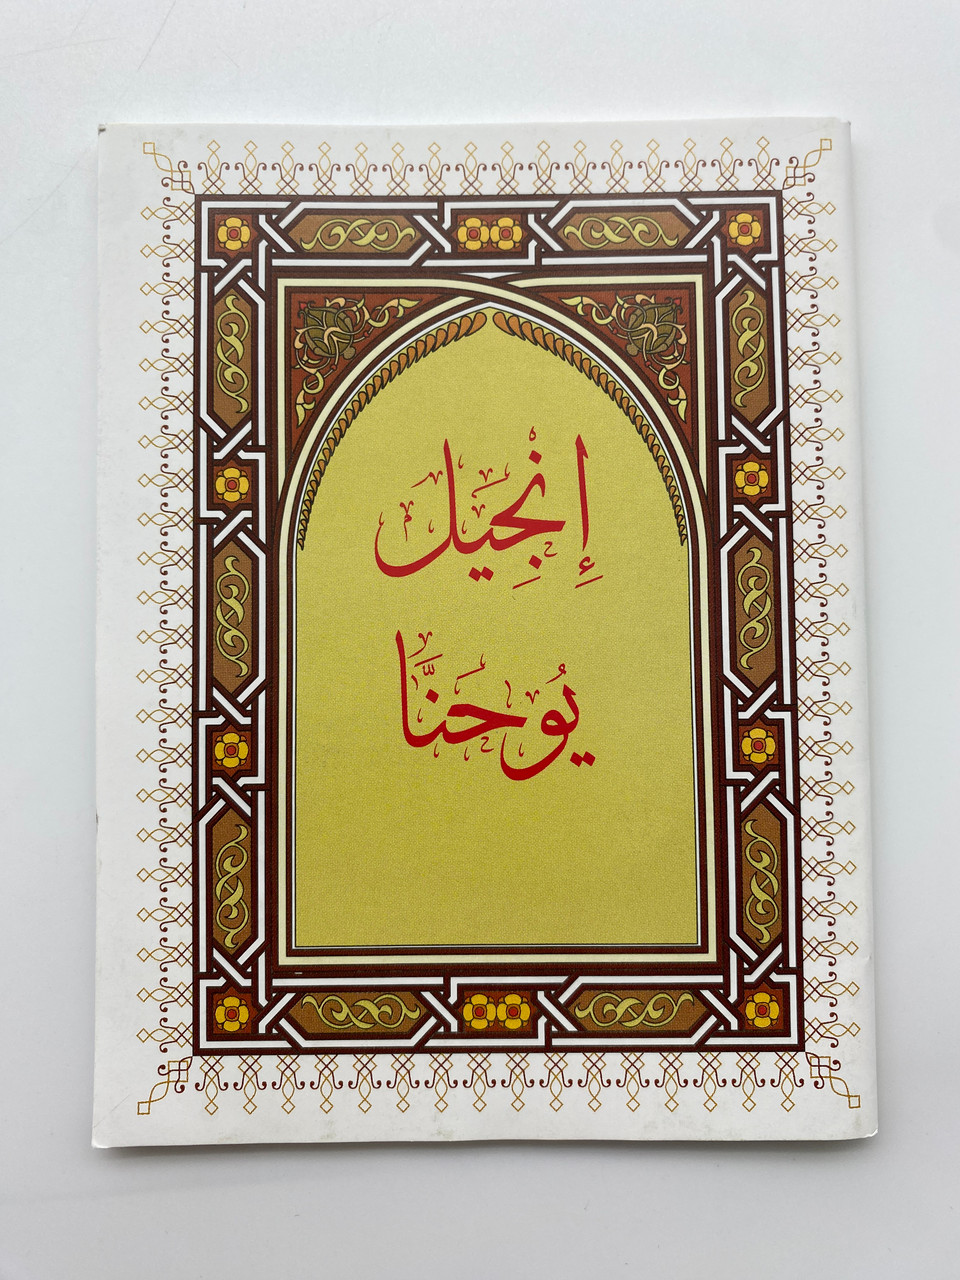 إِنْجِيَل
يُوحَنَّا